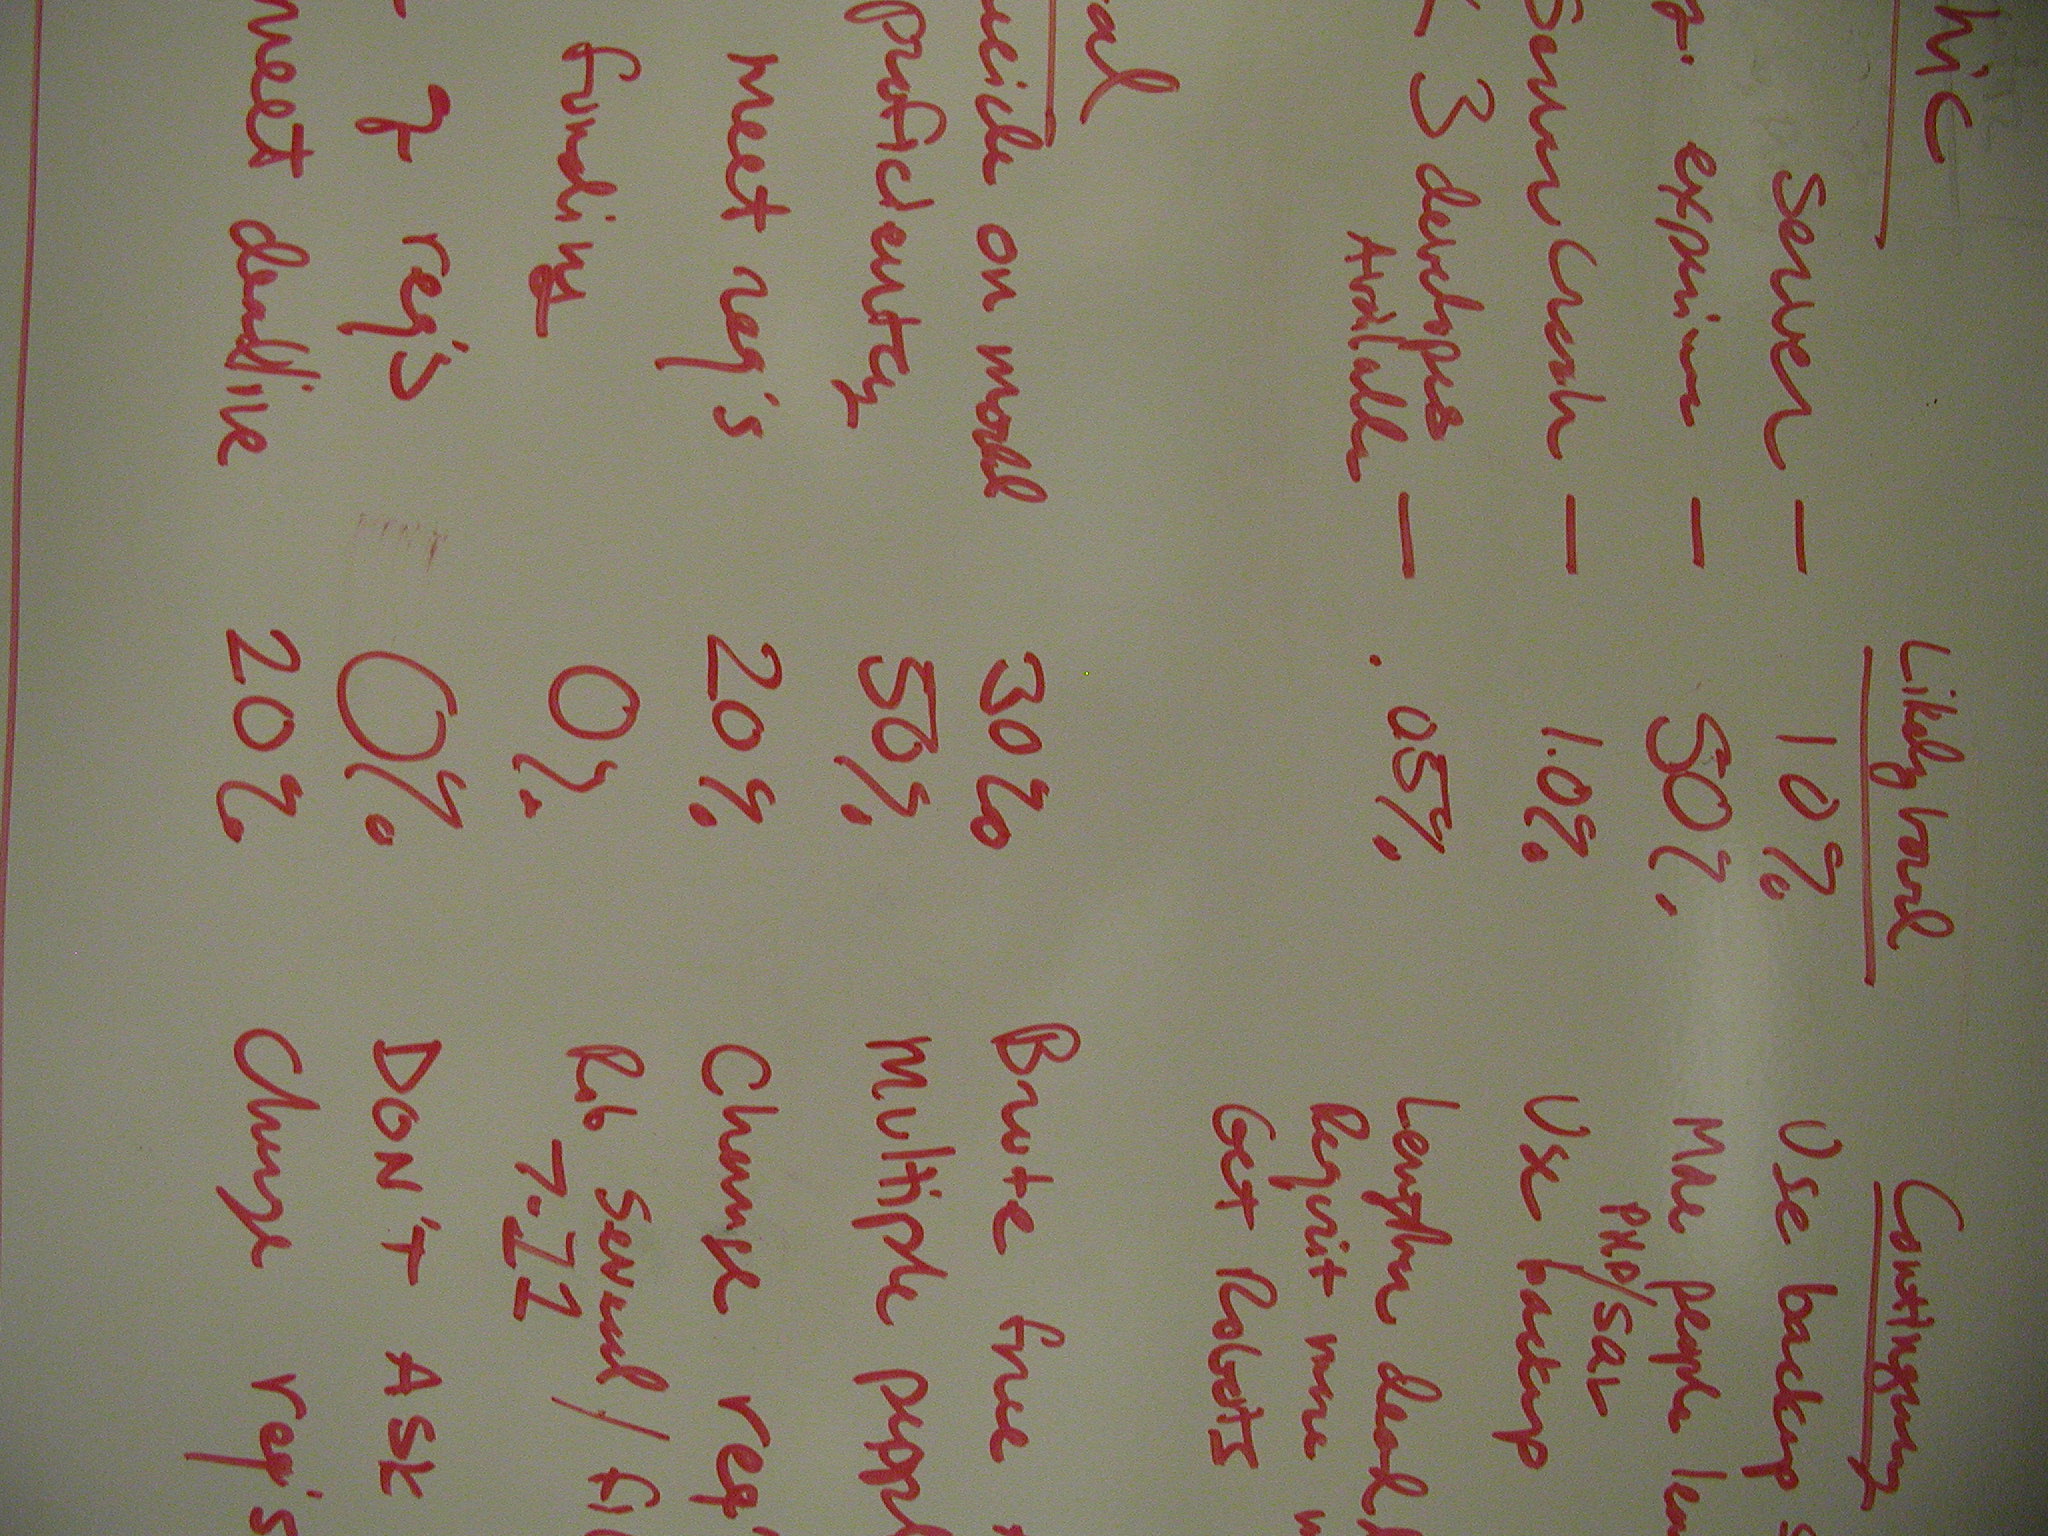 hic Likelyhood Contingency
Server — 10% Use backup S
experience — 50% More people lea
PHD/SAL
Server Crash — 1.0% Use backup
< 3 developers — .05% Lengthen deadl
Available Requit more
Get Robots
al
decide on model 30% Brute force
proficientcy 50% Multiple peopl
meet req's 20% Change req'
funding 0% Rob Several / fi
7-11
z req's 0% DON'T ASK
meet deadline 20% Change req's